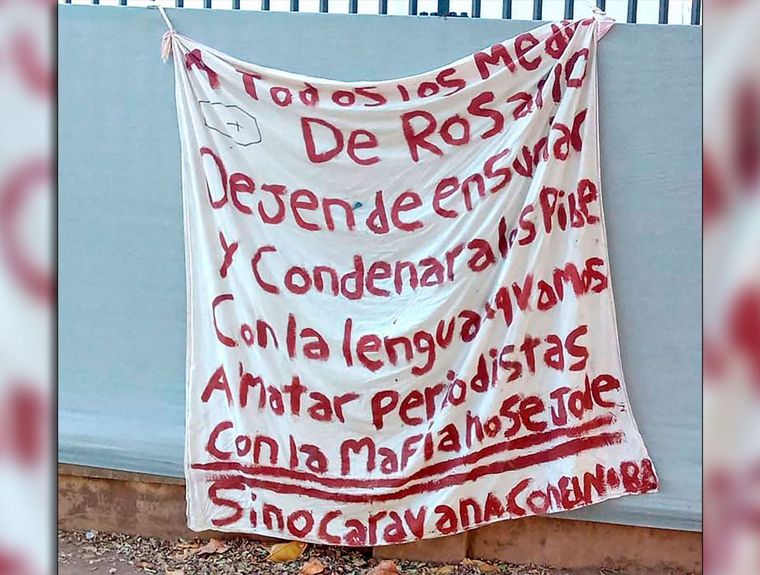 A Todos los Medi
De Rosario
Dejen de ensuciar
Y Condenar a los Pibe
Con la lengua vamos
A Matar Periodistas
Con la Mafia no se Jode
Sino Caravana Con